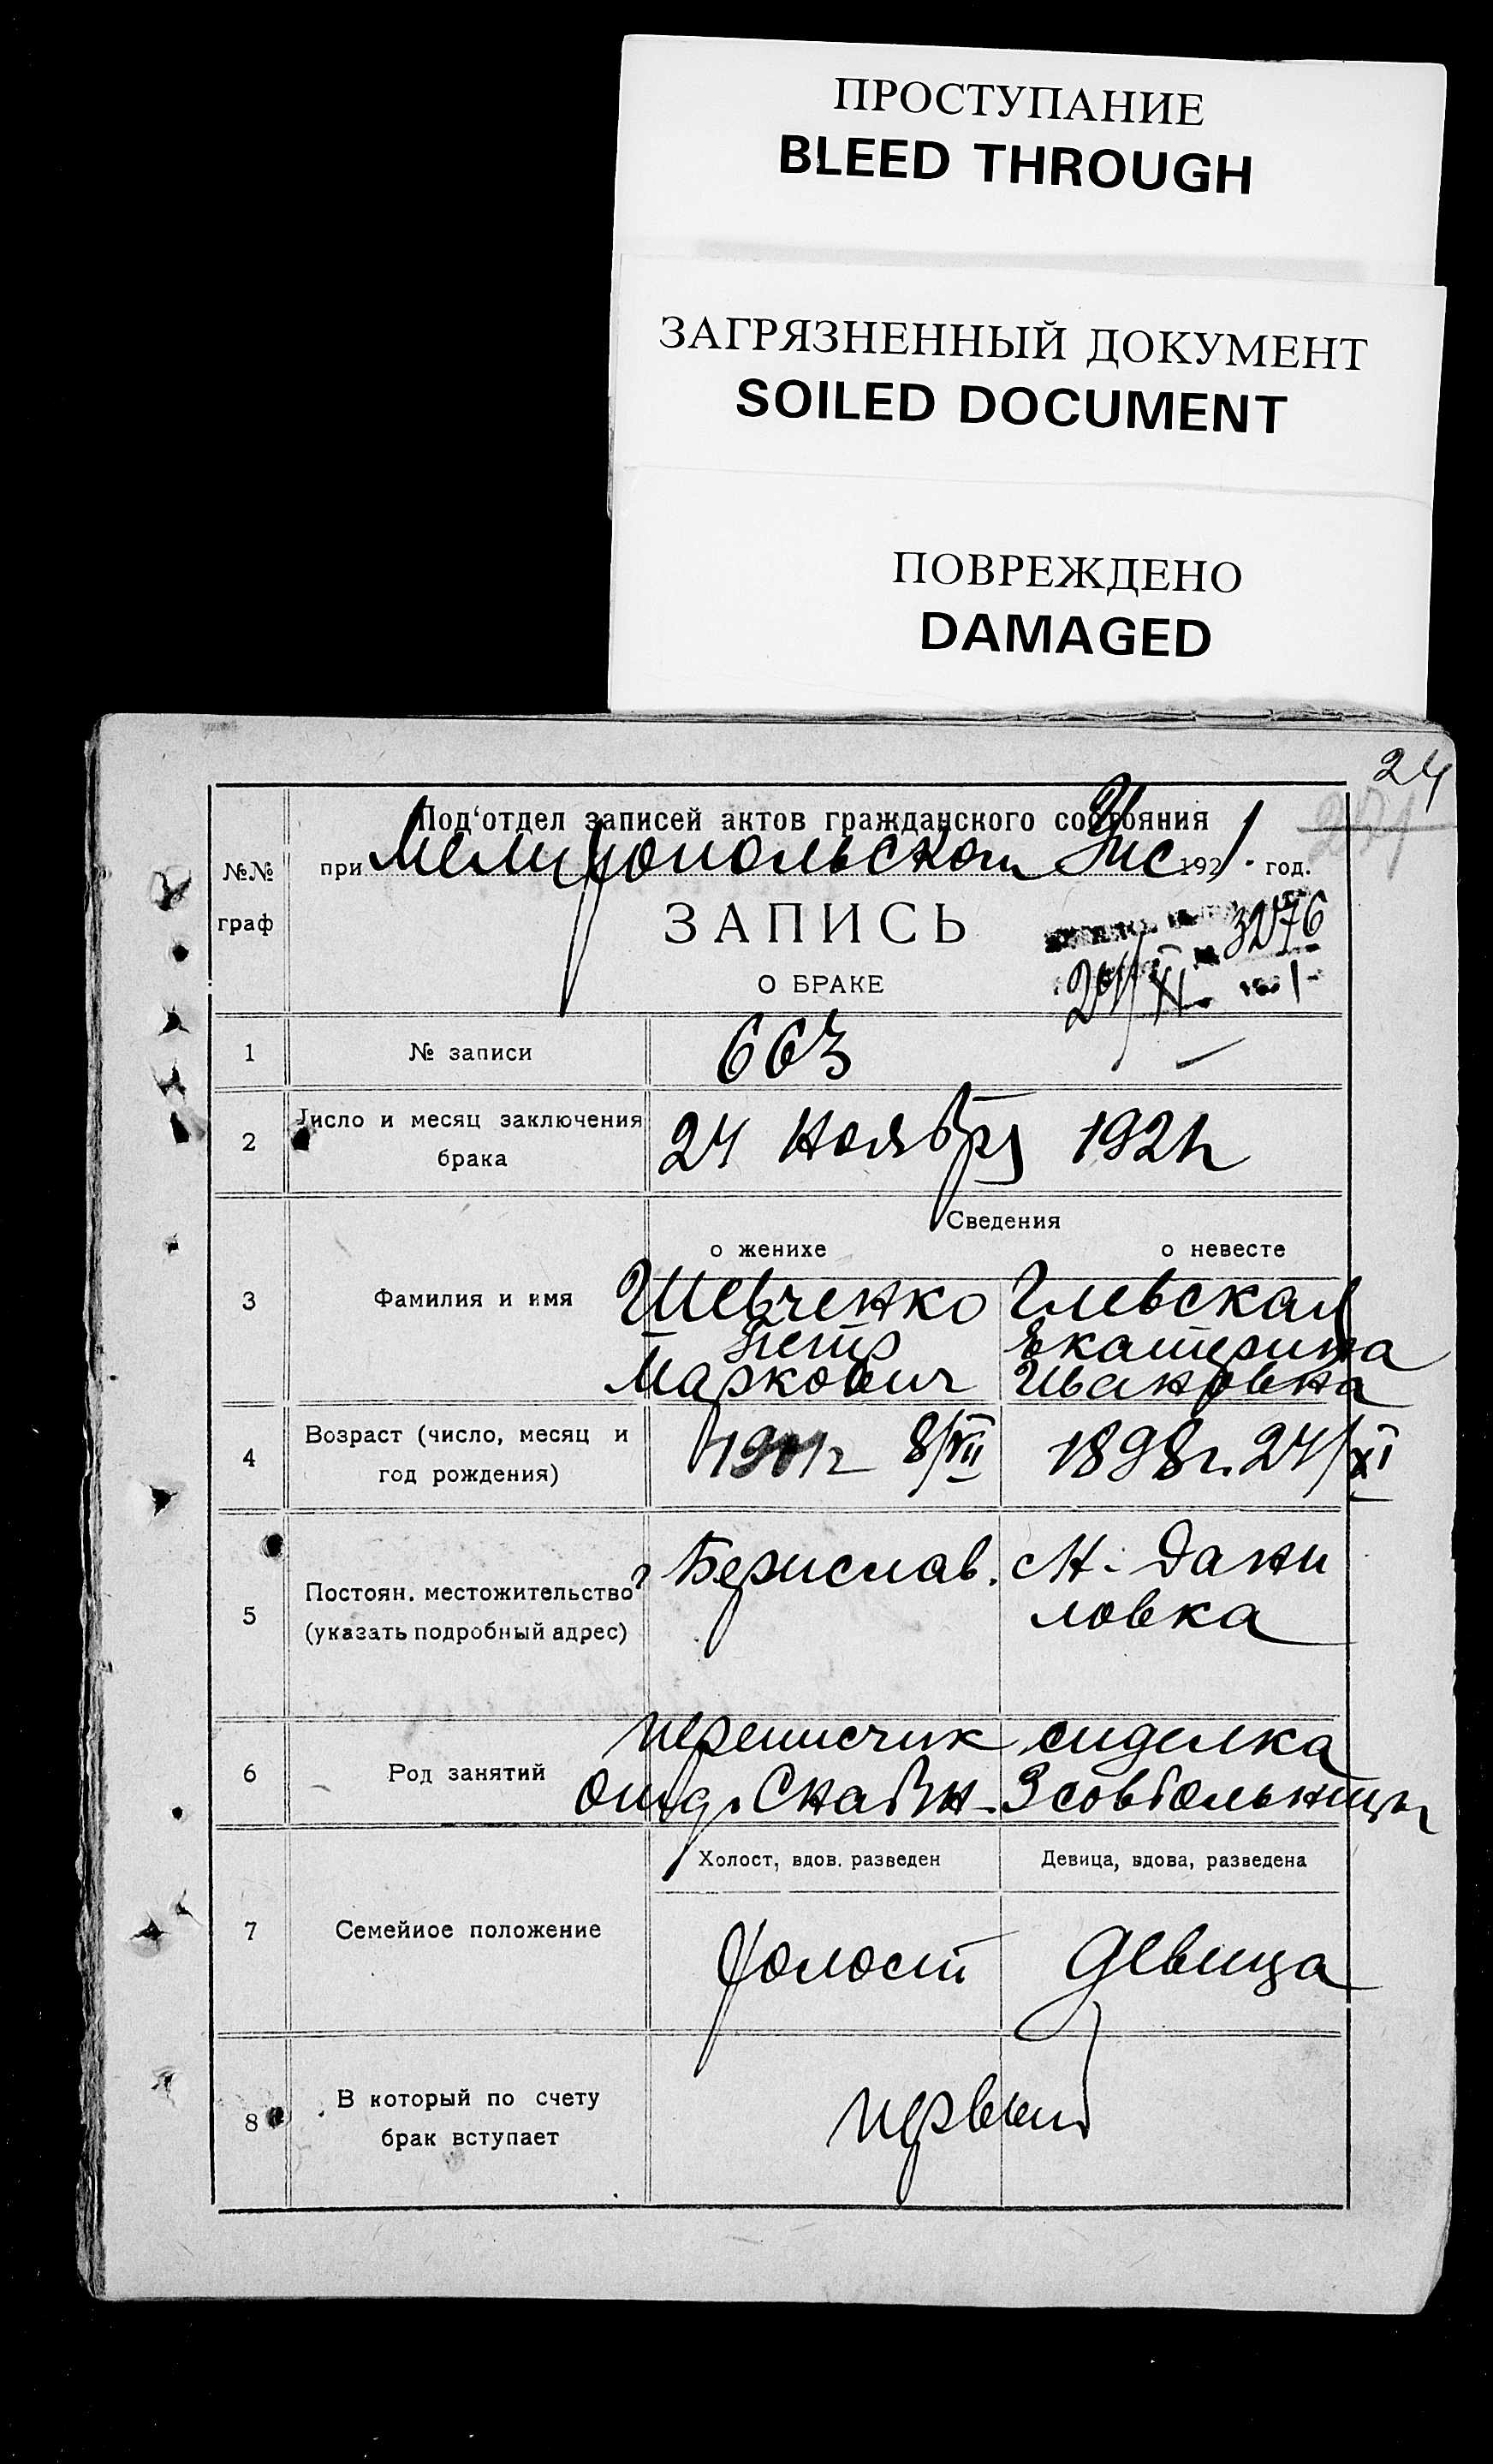 ПРОСТУПАНИЕ
BLEED THROUGH
ЗАГРЯЗНЕННЫЙ ДОКУМЕНТ
SOILED DOCUMENT
ПОВРЕЖДЕНО
DAMAGED
24
Под'отдел записей актов гражданского состояния
№№ граф
при Мелитопольском 1921. год.
ЗАПИСЬ
3276
О БРАКЕ
24/XI
1 № записи 663
2 Число и месяц заключения
брака
24 Ноября 1921г
Сведения
о женихе о невесте
3 Фамилия и имя
Шевченко
Петр
Маркович
Екатерина
Ивановна
4 Возраст (число, месяц и
год рождения)
1901г 8/VII 1898г. 24/XI
5 Постоян. местожительство
(указать подробный адрес)
г Берислав. Н. Дани
ловка
6 Род занятий
переписчик сиделка
3 совбольницы
Холост, вдов. разведен Девица, вдова, разведена
7 Семейное положение
холост девица
8 В который по счету
брак вступает
первый